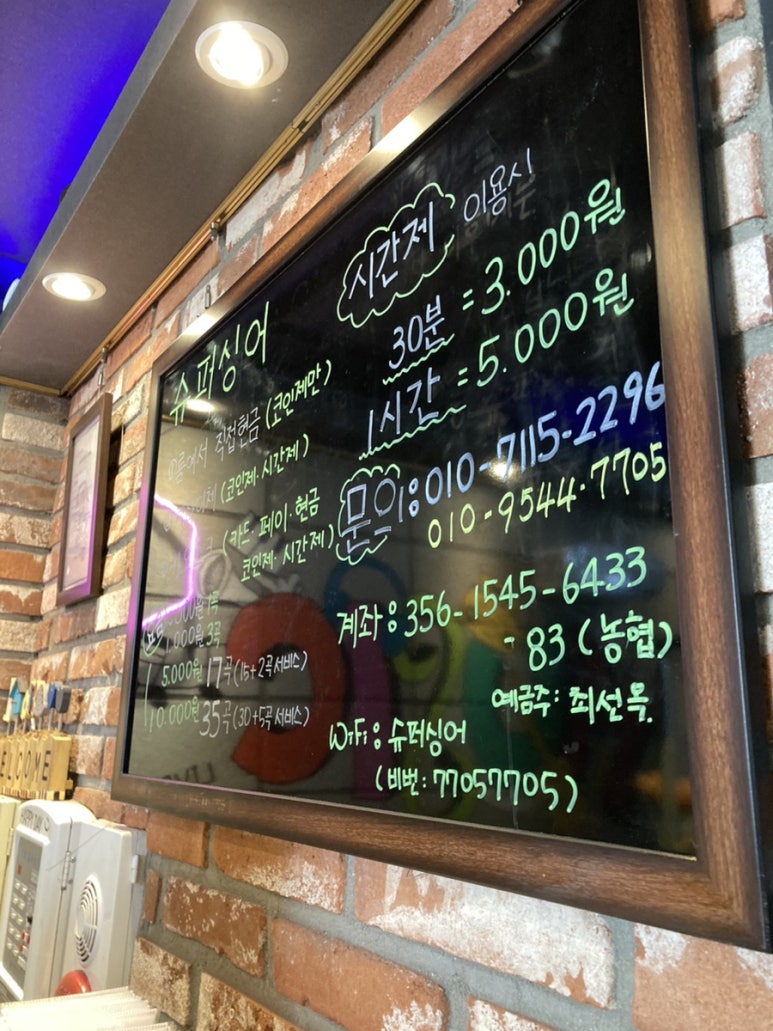 슈퍼싱어
직접현금 (코인제만)
(코인제·시간제)
(카드·페이·현금
코인제·시간제)
1곡
1,000원 3곡
5,000원 17곡 (15+2곡 서비스)
10,000원 35곡 (30+5곡 서비스)
시간제 이용시
30분 = 3.000원
1시간 = 5.000원
문의: 010-7115-2296
010-9544-7705
계좌: 356-1545-6433
-83 (농협)
예금주: 최선옥.
WiFi: 슈퍼싱어
(비번: 77057705)
WELCOME
HAPPY DAY